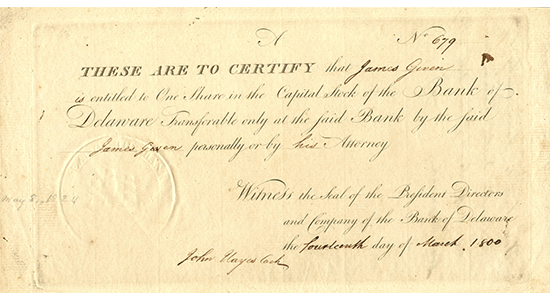 A
No 679
THESE ARE TO CERTIFY that James Given
is entitled to One Share in the Capital Stock of the Bank of
Delaware Transferable only at the said Bank by the said
James Given personally or by his Attorney
Witness the Seal of the President Directors
and Company of the Bank of Delaware
the fourteenth day of March 1800
John